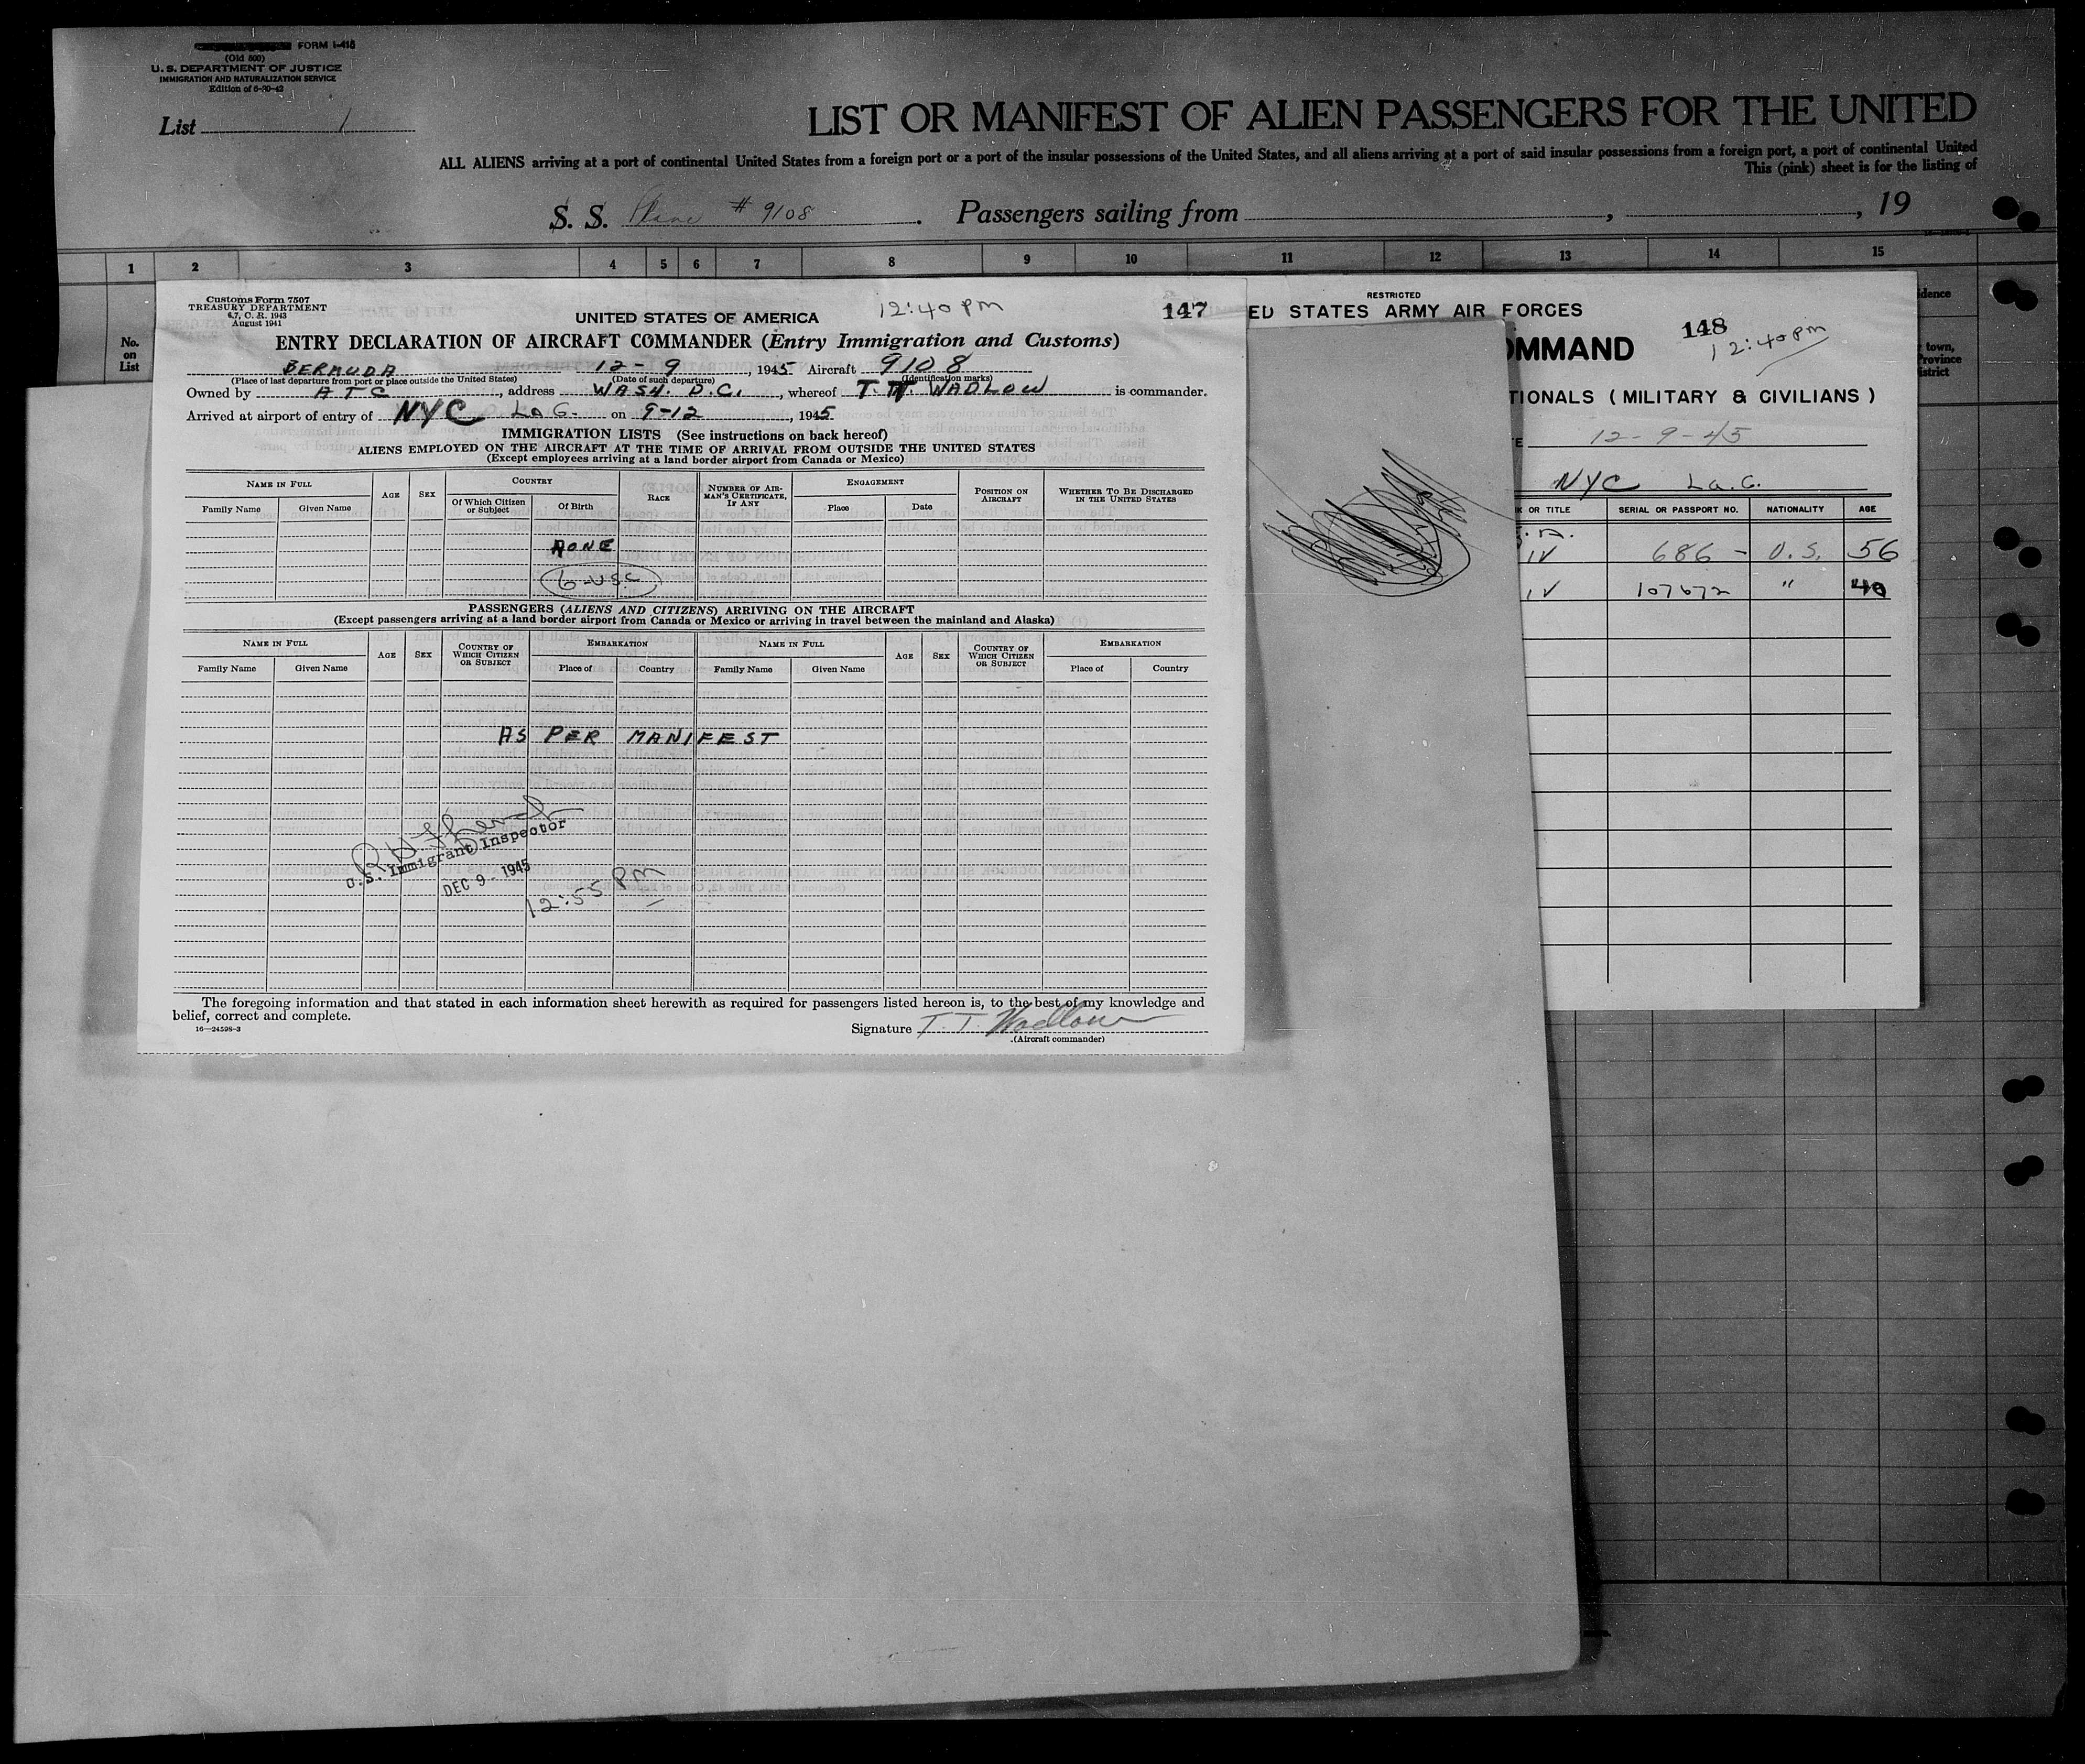 FORM I-415
(Old 500)
U. S. DEPARTMENT OF JUSTICE
IMMIGRATION AND NATURALIZATION SERVICE
Edition of 6-30-42
List 1
LIST OR MANIFEST OF ALIEN PASSENGERS FOR THE UNITED
ALL ALIENS arriving at a port of continental United States from a foreign port or a port of the insular possessions of the United States, and all aliens arriving at a port of said insular possessions from a foreign port, a port of continental United
This (pink) sheet is for the listing of
S. S. Plane # 9108. Passengers sailing from , , 19
1 2 3 4 5 6 7 8 9 10 11 12 13 14 15
No. on List
idence
town,
Province
istrict
Customs Form 7507
TREASURY DEPARTMENT
4.7, C. R. 1943
August 1941
12:40 PM
147
UNITED STATES OF AMERICA
ENTRY DECLARATION OF AIRCRAFT COMMANDER (Entry Immigration and Customs)
BERMUDA 12-9, 1945 Aircraft 9108
(Place of last departure from port or place outside the United States) (Date of such departure) (Identification marks)
Owned by ATC, address WASH. D.C., whereof T. T. WADLOW is commander.
Arrived at airport of entry of NYC La G. on 9-12, 1945
IMMIGRATION LISTS (See instructions on back hereof)
ALIENS EMPLOYED ON THE AIRCRAFT AT THE TIME OF ARRIVAL FROM OUTSIDE THE UNITED STATES
(Except employees arriving at a land border airport from Canada or Mexico)
NAME IN FULL AGE SEX COUNTRY RACE NUMBER OF AIRMAN'S CERTIFICATE, IF ANY ENGAGEMENT POSITION ON AIRCRAFT WHETHER TO BE DISCHARGED IN THE UNITED STATES
Family Name Given Name Of Which Citizen or Subject Of Birth Place Date
NONE
6-USC
PASSENGERS (ALIENS AND CITIZENS) ARRIVING ON THE AIRCRAFT
(Except passengers arriving at a land border airport from Canada or Mexico or arriving in travel between the mainland and Alaska)
NAME IN FULL AGE SEX COUNTRY OF WHICH CITIZEN OR SUBJECT EMBARKATION NAME IN FULL AGE SEX COUNTRY OF WHICH CITIZEN OR SUBJECT EMBARKATION
Family Name Given Name Place of Country Family Name Given Name Place of Country
AS PER MANIFEST
U.S. Immigrant Inspector
DEC 9 - 1945
12:55 PM
The foregoing information and that stated in each information sheet herewith as required for passengers listed hereon is, to the best of my knowledge and
belief, correct and complete.
16—24598-3
Signature T. T. Wadlow
(Aircraft commander)
RESTRICTED
ED STATES ARMY AIR FORCES
148
12:40 PM
OMMAND
TIONALS (MILITARY & CIVILIANS)
E 12-9-45
NYC La. G.
K OR TITLE SERIAL OR PASSPORT NO. NATIONALITY AGE
IV 686- U.S. 56
IV 107672 " 40